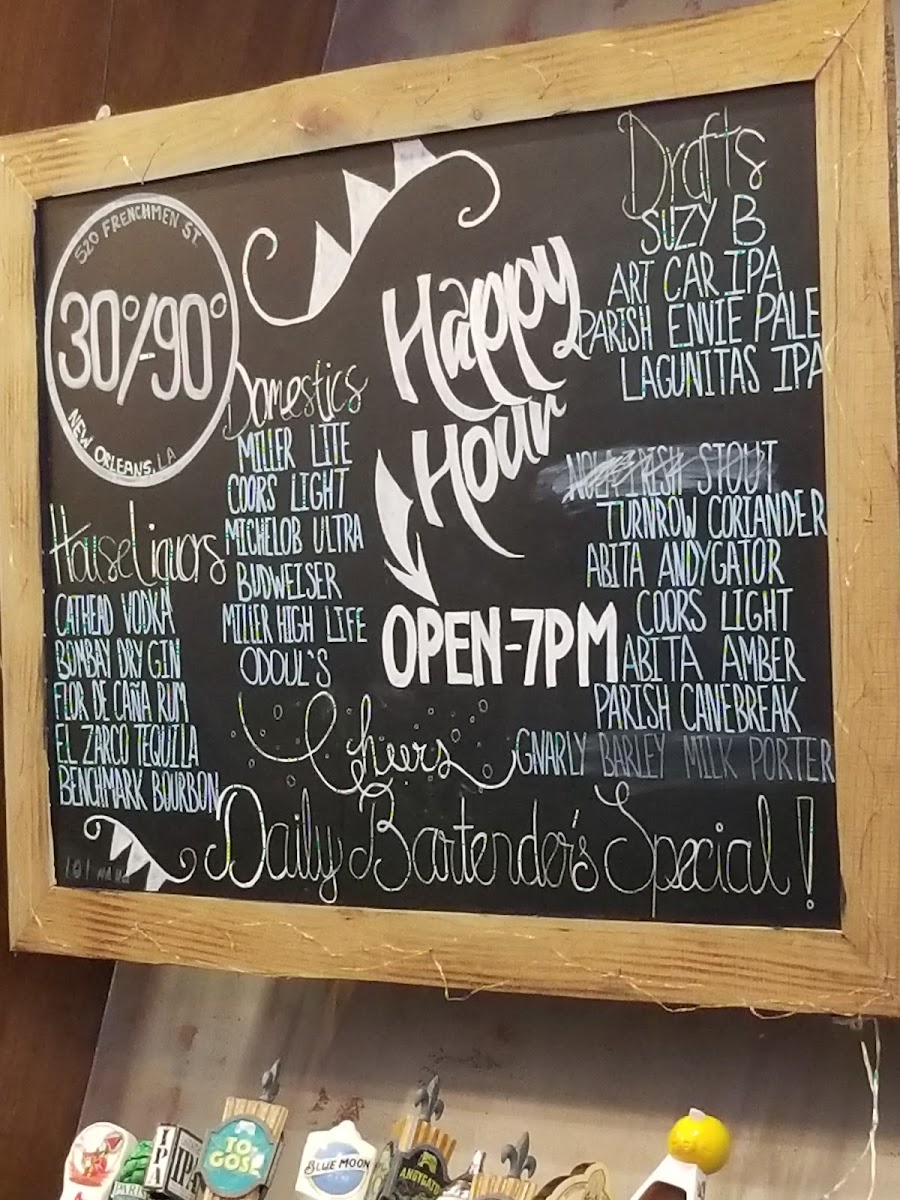 520 FRENCHMEN ST.
30°/-90°
NEW ORLEANS, LA
Happy
Hour
OPEN-7PM
Domestics
MILLER LITE
COORS LIGHT
MICHELOB ULTRA
BUDWEISER
MILLER HIGH LIFE
ODOUL'S
House Liquors
CATHEAD VODKA
BOMBAY DRY GIN
FLOR DE CAÑA RUM
EL ZARCO TEQUILA
BENCHMARK BOURBON
Drafts
SUZY B
ART CAR IPA
PARISH ENVIE PALE
LAGUNITAS IPA
NOLA IRISH STOUT
TURNROW CORIANDER
ABITA ANDYGATOR
COORS LIGHT
ABITA AMBER
PARISH CANEBREAK
GNARLY BARLEY MILK PORTER
Cheers
Daily Bartender's Special!
PARISH
IPA
IPA
TO-
GOS
BLUE MOON
ANDYGATO